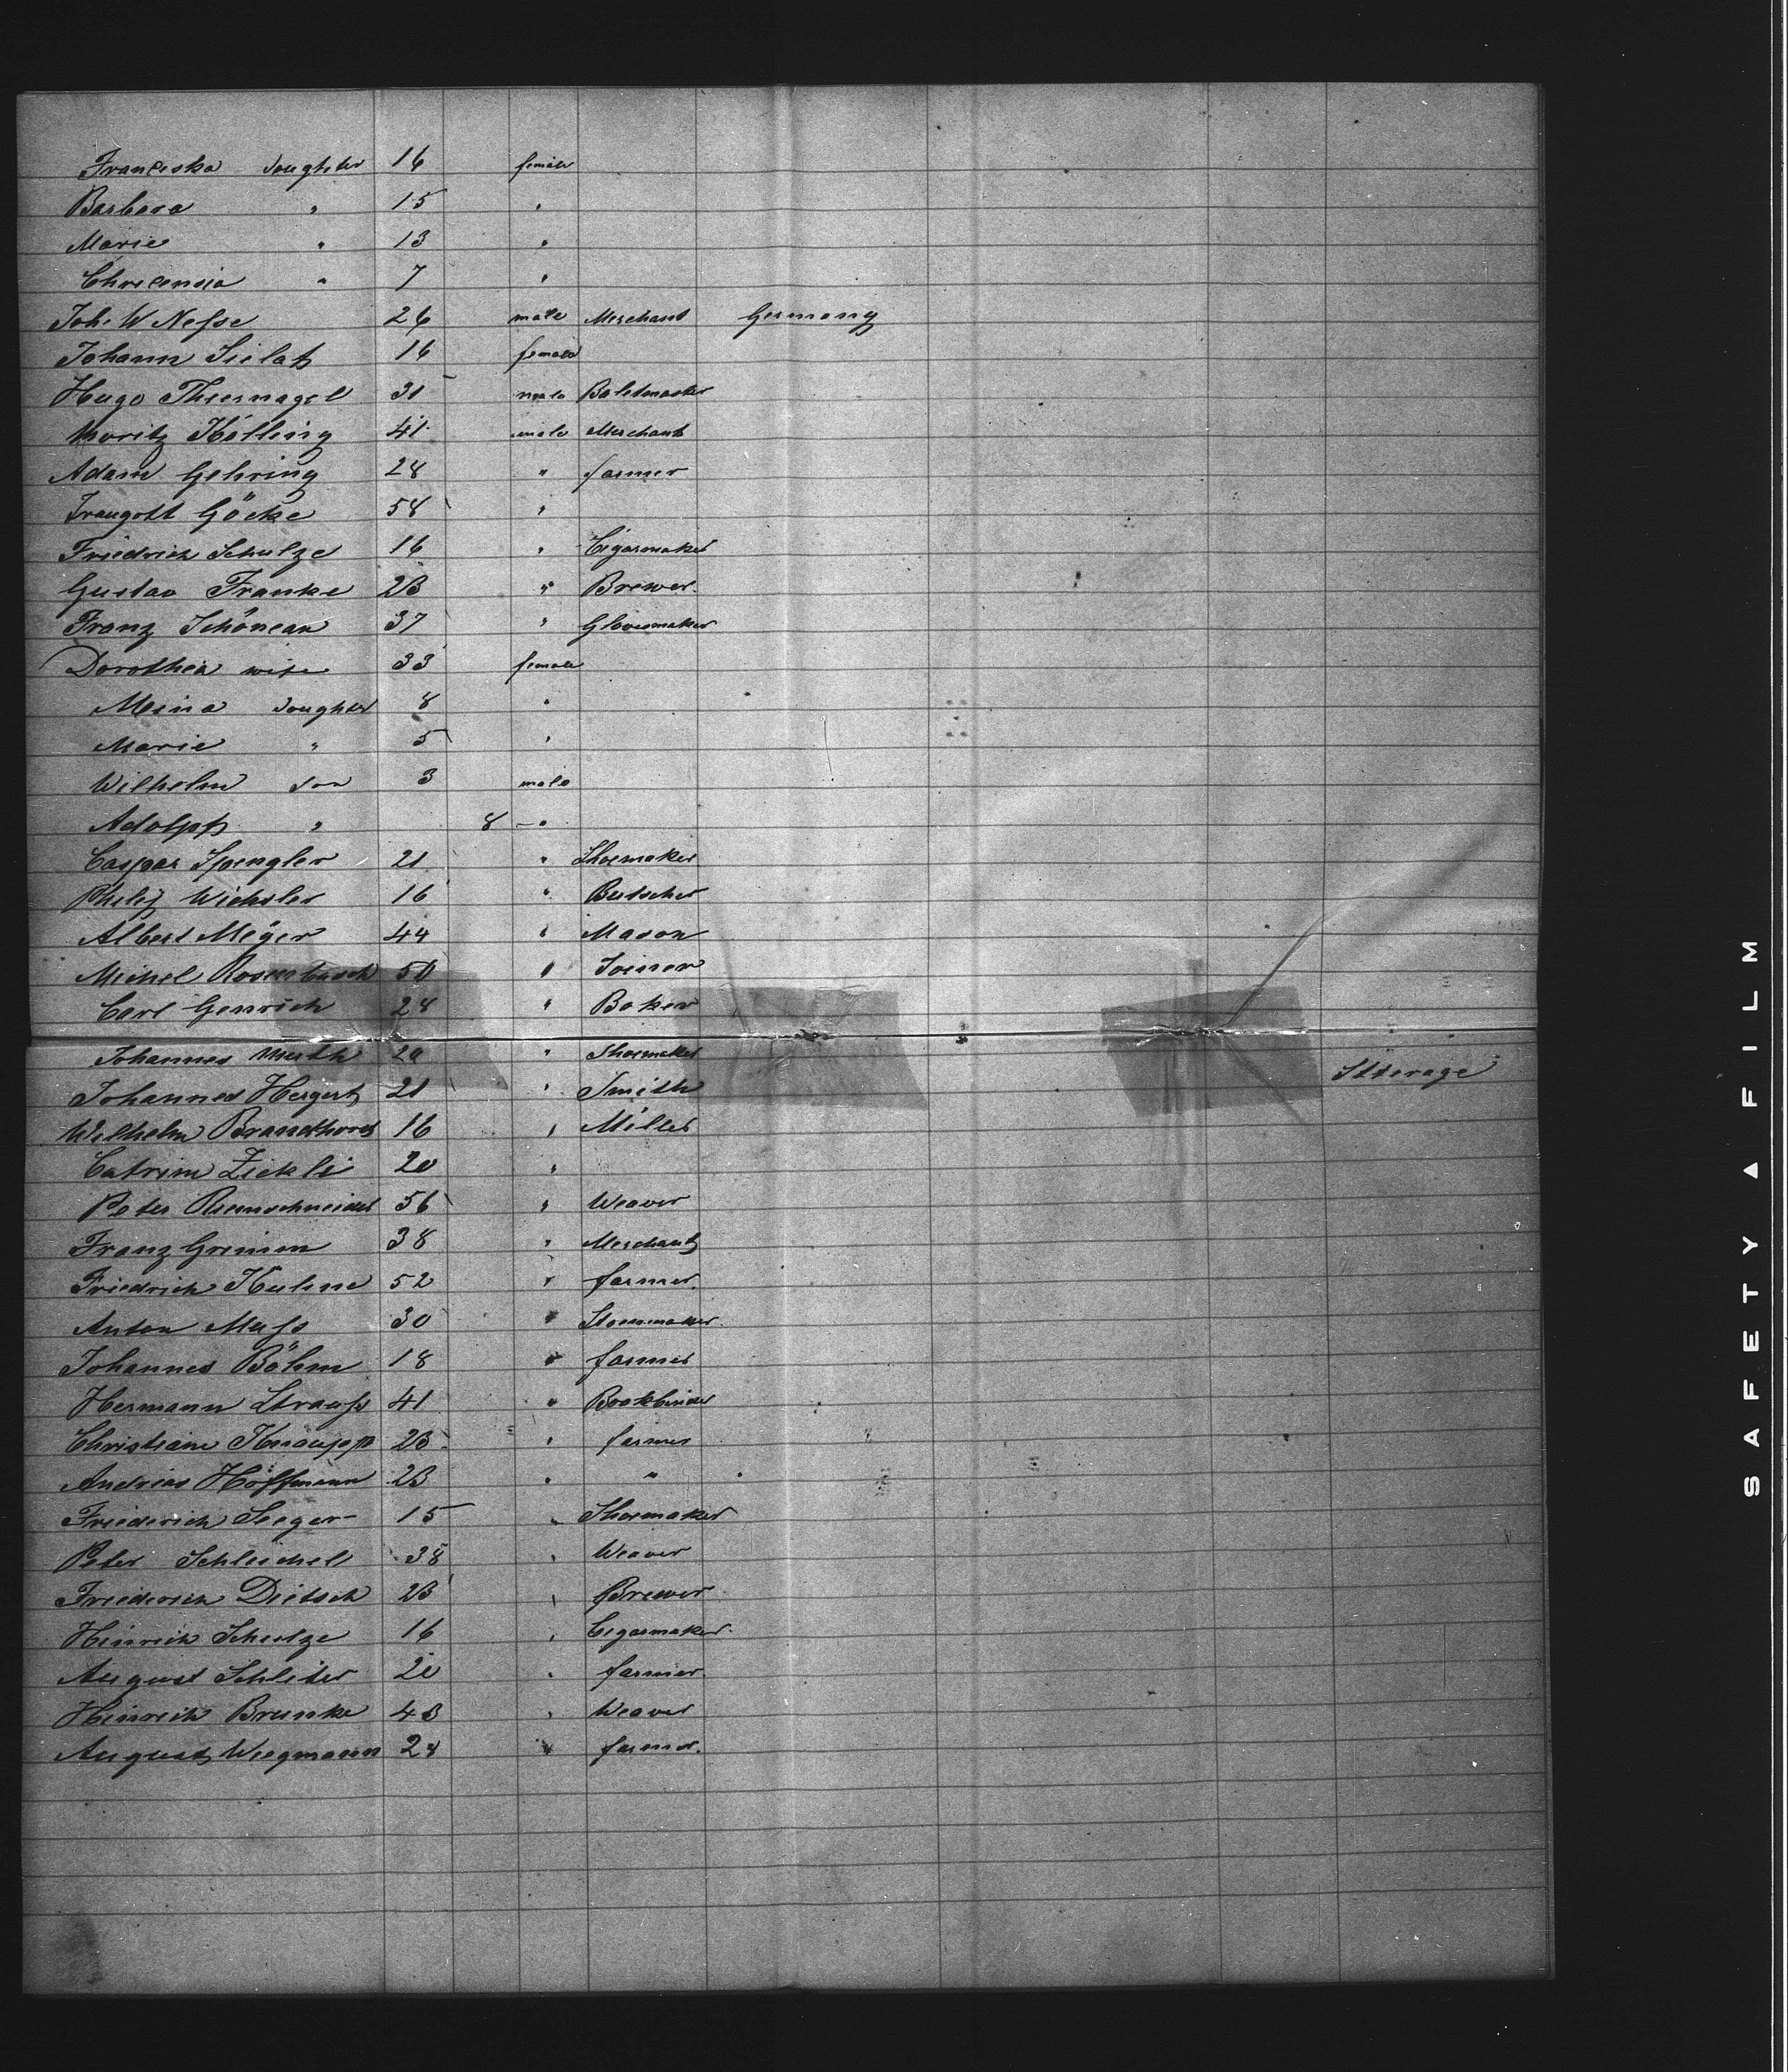 Franciska daughter 16 female
Barbara " 15 "
Marie " 13 "
Chrecensia " 7 "
Joh. W Nesse 26 male Merchant Germany
Johann 16 female
Hugo Thiernagel 31 male
Moritz Kölling 41 male Merchant
Adam Gehring 28 " farmer
Traugott Göcke 58 "
Friedrich Schulze 16 " Cigarmaker
Gustav Franke 23 " Brewer.
Franz Schönean 37 " Glovemaker
Dorothea wife 33 female
Meina daughter 8 "
Marie " 5 "
Wilhelm son 3 male
Adolph " 8 "
Caspar Spengler 21 " Shoemaker
Philip Wichsler 16 " Butscher
Albert Meÿer 44 " Mason
Michel Rosenbusch 50 " Joiner
Carl Genrich 28 " Baker
Johannes Muth 20 " Shoemaker
Johannes Hergert 21 " Smith Stterage
Wilhelm 16 " Miller
Catrim Zickli 20 "
Peter Riemschneider 56 " Weaver
Franz Grimm 38 " Merchant
Friedrich Kuhne 52 " farmer.
Anton Muss 30 "
Johannes Böhm 18 " farmer
Hermann Strauss 41 " Bookbinder
Christian Knaupp 23 " farmer
Andrias Hoffmann 23 " "
Friederich Seeger 15 " Shoemaker
Peter Schleichel 38 " Weaver
Friederich Dietsch 23 " Brewer
Heinrich Schulze 16 " Cigarmaker.
August Schliter 20 " farmer.
Heinrich Brunke 43 " Weaver
August Wiegmann 24 " farmer.
SAFETY ▲ FILM